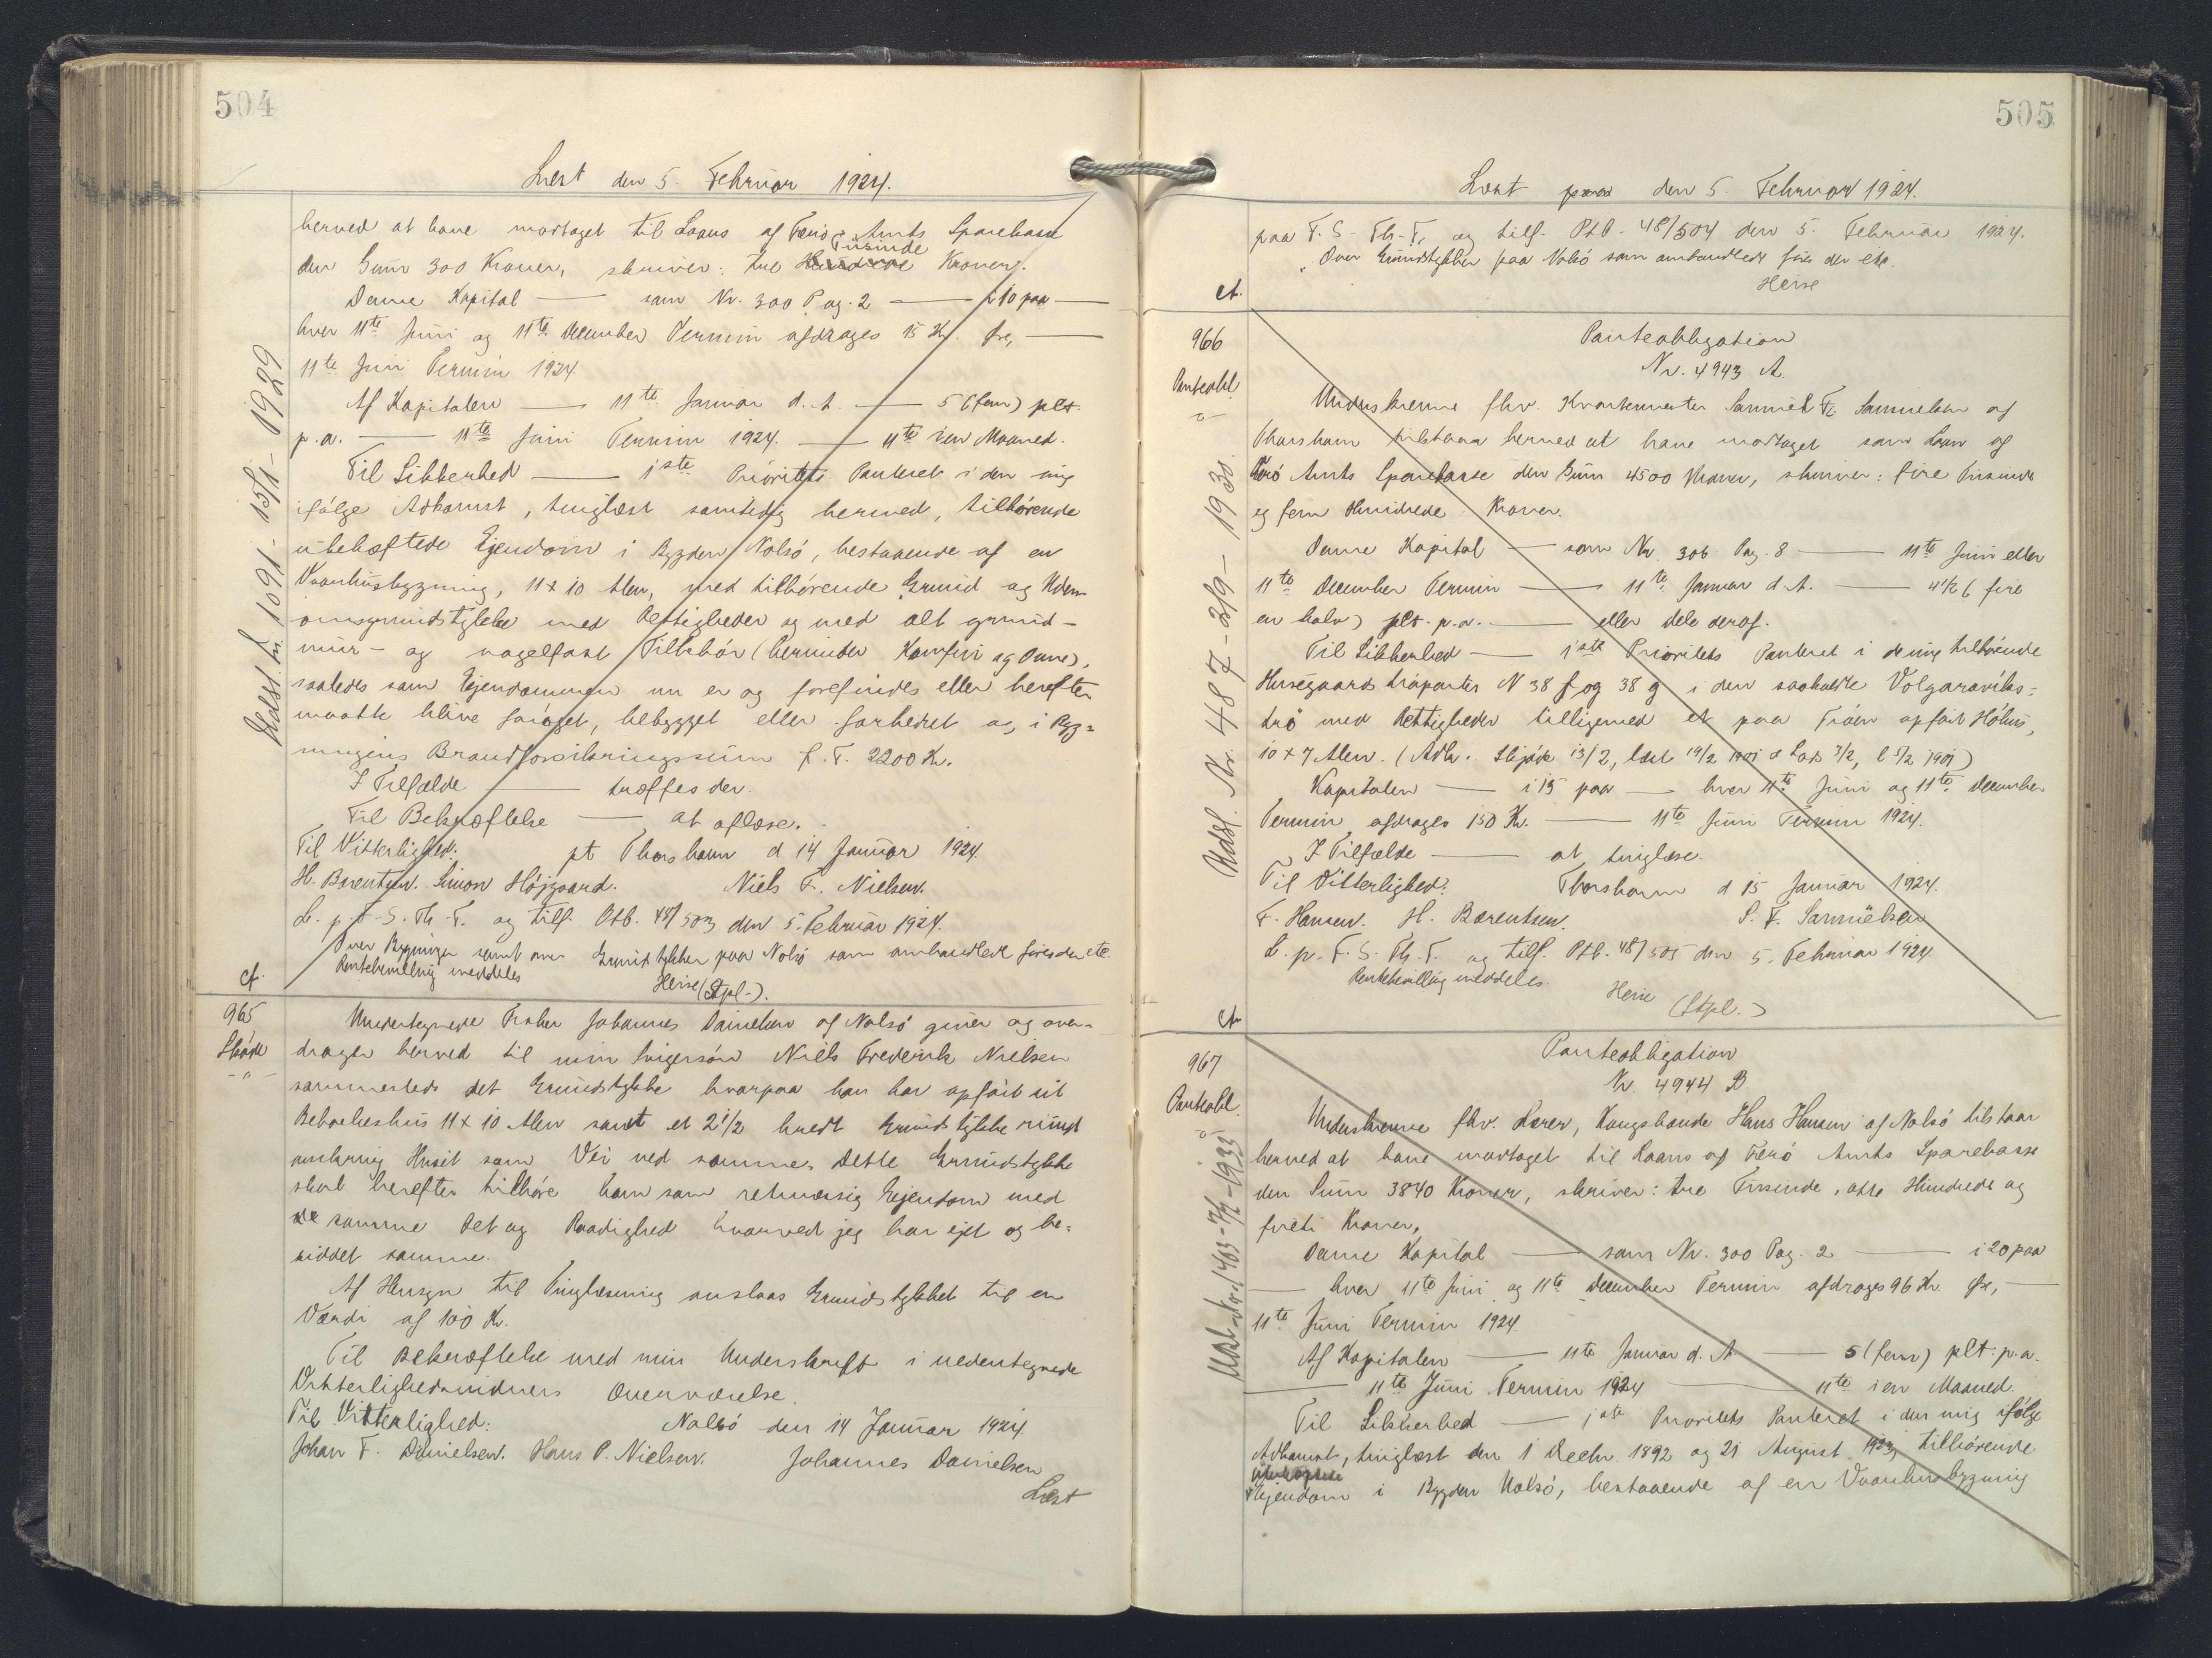 504
Læst den 5. Februar 1924.
herved at have modtaget til Laans af Færø Amts Sparekasse
den Sum 300 Kroner, skriver: tre Hundrede Tusinde Kroner.
Denne Kapital — som Nr. 300 Pag. 2 — i 10 paa —
hver 11te Juni og 11te December Termin afdrages 15 Kr. fra, —
11te Juni Termin 1924.
Af Kapitalen — 11te Januar d. A. — 5 (fem) pCt.
p.a. — 11te Juni Termin 1924. — 11te i en Maaned.
Til Sikkerhed — 1ste Prioritets Panteret i den mig
ifølge Adkomst, tinglæst samtidig hermed, tilhørende
ubehæftede Ejendom i Bygden Nolsö, bestaaende af en
Vaanhusbygning, 11 x 10 Alen, med tilhørende Grund og Uden-
omsgrundstykke med Rettigheder og med alt grund-
mur- og nagelfast Tilbehør (herunder Komfur og Ovne),
saaledes som Ejendommen nu er og forefindes eller herefter
maatte blive forøget, bebygget eller forbedret og i Byg-
ningens Brandforsikringssum f. T. 2200 Kr.
I Tilfælde — træffes der.
Til Bekræftelse — at aflæse.
Til Vitterlighed: pt Thorshavn d 14 Januar 1924.
H. Barentsen. Simon Højgaard. Niels F. Nielsen.
L. p. F.-S. Th.-T. og tilf. Ptb. 48/503 den 5. Februar 1924.
Over Bygninger samt over Grundstykker paa Nolsö som omhandlet føres der etc.
Rentebevilling meddeles
Heise (Stpl.).
cf.
Udsl. Nr. 1091 - 15/1 - 1929
965
Skøde
- " -
Undertegnede Træher Johannes Danielsen af Nolsö giver og over-
drager herved til min Svigersøn Niels Frederik Nielsen
sammesteds det Grundstykke hvorpaa han har opført sit
Beboelseshus 11 x 10 Alen samt et 2 1/2 bredt Grundstykke rundt
omkring Huset som Vei ved samme. Dette Grundstykke
skal herefter tilhøre ham som retmæssig Ejendom med
de samme Ret og Raadighed hvorved jeg har ejet og be-
siddet samme.
Af Hensyn til Tinglæsning anslaas Grundstykket til en
Værdi af 100 Kr.
Til Bekræftelse med min Underskrift i nedentegnede
Vitterlighedsvidners Overværelse.
Til Vitterlighed: Nolsö den 14 Januar 1924.
Johan F. Danielsen. Hans P. Nielsen. Johannes Danielsen
Læst
505
Læst den 5. Februar 1924.
paa F. S. Th.-T. og tilf. Ptb. 48/504 den 5. Februar 1924.
Over Grundstykker paa Nolsö som omhandlet føres der etc.
Heise
cf.
966
Panteobl.
- " -
Panteobligation
Nr. 4943 A.
Underskrevne fhv. Kvartermester Samuel Fr. Samuelsen af
Thorshavn tilstaar herved at have modtaget som Laan af
Færö Amts Sparekasse den Sum 4500 Kroner, skriver: fire Tusinde
og fem Hundrede Kroner.
Denne Kapital — som Nr. 306 Pag. 8 — 11te Juni eller
11te December Termin — 11te Januar d. A. — 4 1/2 (fire
en halv) pCt. p.a. — eller dele deraf.
Til Sikkerhed — 1ste Prioritets Panteret i de mig tilhørende
Husegaards tröparter N 38 f og 38 g i den saakaldte Volgaraviks-
trö med Rettigheder tilligemed et paa Tröen opført Höhus,
10 x 7 Alen. (Adk. Skjøde 13/2, læst 19/2 1901 & Lods 3/2, l 5/2 1901)
Kapitalen — i 15 paa — hver 11te Juni og 11te December
Termin afdrages 150 Kr. — 11te Juni Termin 1924.
I Tilfælde — at tinglæse.
Til Vitterlighed: Thorshavn d 15 Januar 1924.
F. Hansen. H. Barentsen. S. F. Samuelsen
L. p. F. S. Th. T. og tilf. Ptb. 48/505 den 5. Februar 1924
Rentebevilling meddeles.
Heise (Stpl.)
cf.
Udsl. Nr. 487 - 2/9 - 1930.
967
Panteobl.
- " -
Panteobligation
Nr. 4944 B
Underskrevne fhv. Lærer, Kongsbonde Hans Hansen af Nolsö tilstaar
herved at have modtaget til Laans af Færö Amts Sparekasse
den Sum 3840 Kroner, skriver: tre Tusinde, otte Hundrede og
fyrreti Kroner.
Denne Kapital — som Nr. 300 Pag. 2 — i 20 paa
— hver 11te Juni og 11te December Termin afdrages 96 Kr. fra, —
11te Juni Termin 1924.
Af Kapitalen — 11te Januar d. A — 5 (fem) pCt. p.a.
— 11te Juni Termin 1924 — 11te i en Maaned.
Til Sikkerhed — 1ste Prioritets Panteret i den mig ifølge
Adkomst, tinglæst den 1 Decbr. 1892 og 21 August 1923, tilhørende
ubehæftede
Ejendom i Bygden Nolsö, bestaaende af en Vaanhusbygning